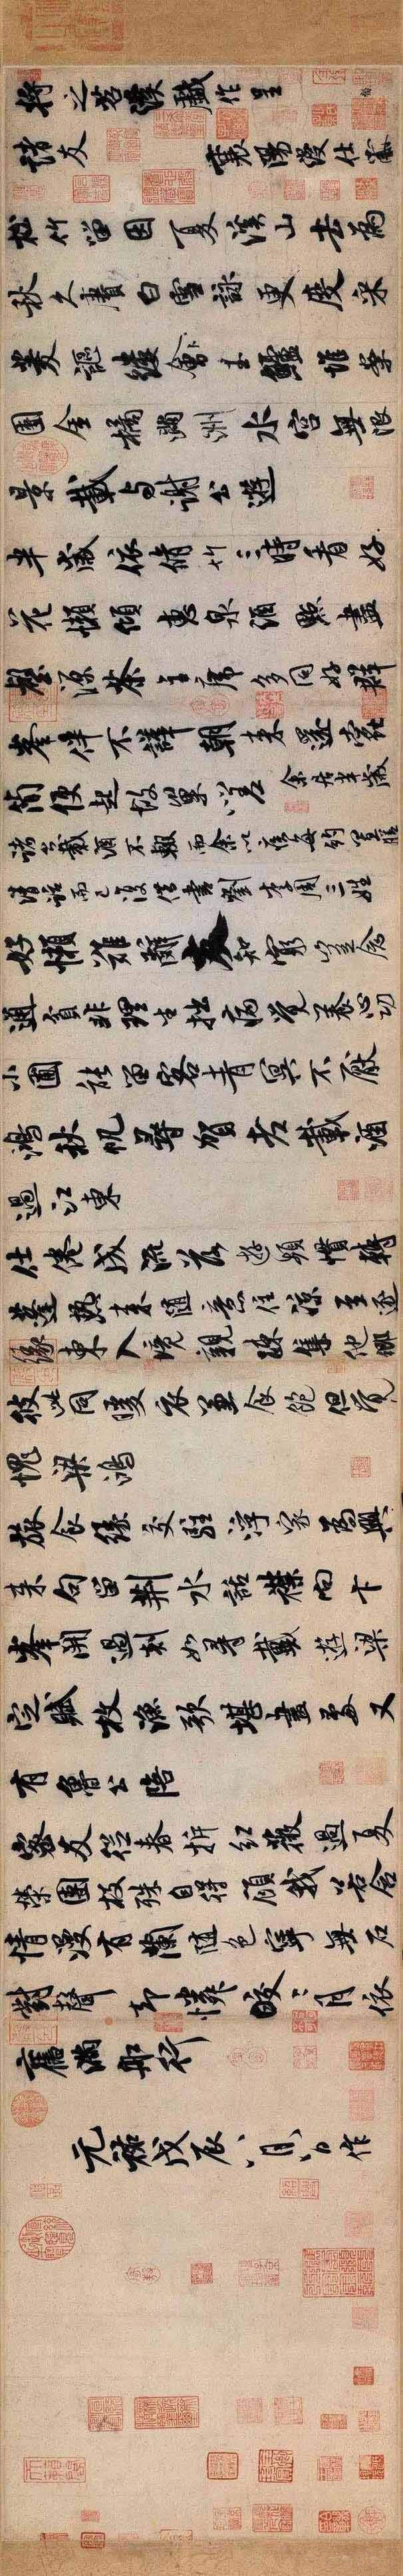 將之苕溪戲作呈
諸友 襄陽漫仕黻
松竹留因夏溪山去為
秋久賡白雪詠更度采
菱謳縷會玉鱸堆案
團金橘滿洲水宮無限
景載與謝公遊
半歲依修竹三時看好
花懶傾惠泉酒點盡
壑源茶主席多同好群
峰伴不譁朝來還蠹
簡便起故巢嗟 余居半歲
諸公載酒不輟而余以疾每約置膳
清話而已復借書劉李周三姓
好懶難辭友知窮豈念
通貧非理生拙病覺養心功
小圃能留客青冥不厭
鴻秋帆尋賀老載酒
過江東
仕倦成流落遊頻慣轉
蓬熱來隨意住涼至逐
緣東入境親疎集他鄉
彼此同暖衣兼食飽但覺
愧梁鴻
旅食緣交駐浮家為興
來句留荊水話襟向卞
峯開過剡如尋戴遊梁
定賦枚漁歌堪畫處又
有魯公陪
密友從春拆紅薇過夏
榮團枝殊自得顧我若含
情漫有蘭隨色寧無石
對聲却憐皎皎月依
舊滿船行
元祐戊辰八月八日作